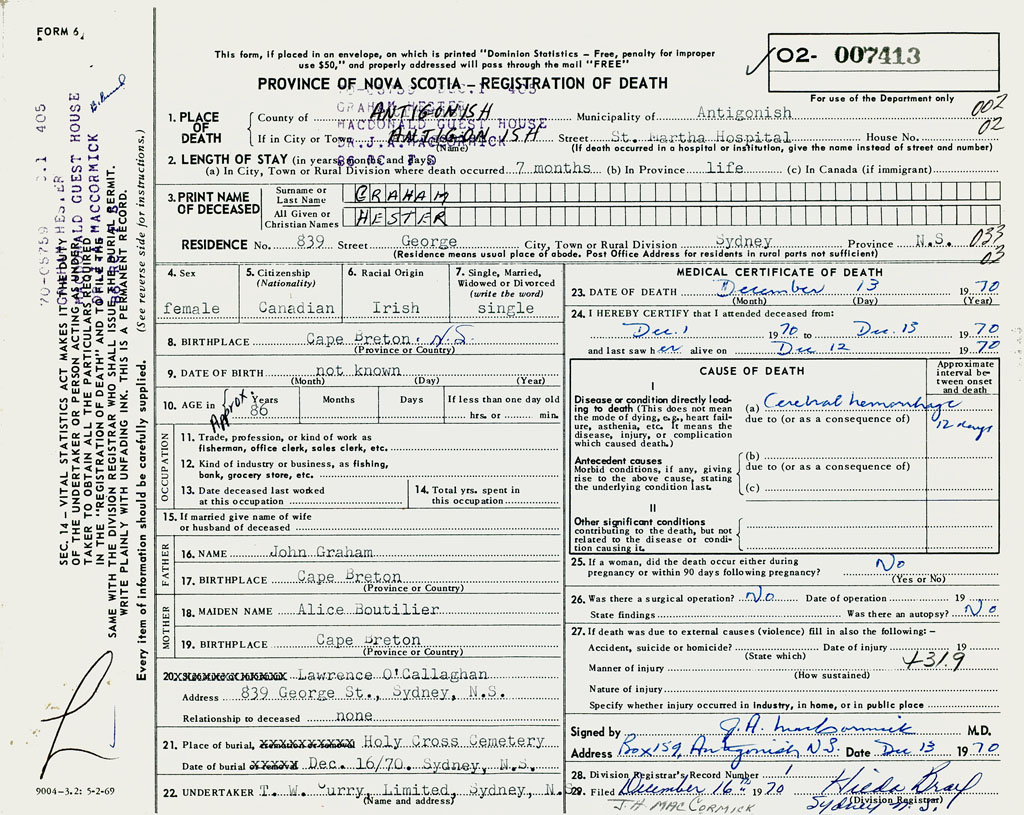 FORM 6
This form, if placed in an envelope, on which is printed "Dominion Statistics – Free, penalty for improper
use $50," and properly addressed will pass through the mail "FREE"
PROVINCE OF NOVA SCOTIA – REGISTRATION OF DEATH
02- 007413
For use of the Department only
002
02
GRAHAM HESTER
MACDONALD GUEST HOUSE
DR. J.A. MACCORMICK
1. PLACE OF DEATH
County of ANTIGONISH Municipality of Antigonish
If in City or Town ANTIGONISH (Name) Street St. Martha Hospital House No.
(If death occurred in a hospital or institution, give the name instead of street and number)
2. LENGTH OF STAY (in years, months and days)
(a) In City, Town or Rural Division where death occurred 7 months (b) In Province life (c) In Canada (if immigrant)
3. PRINT NAME OF DECEASED
Surname or Last Name GRAHAM
All Given or Christian Names HESTER
RESIDENCE No. 839 Street George City, Town or Rural Division Sydney Province N.S.
033
03
(Residence means usual place of abode. Post Office Address for residents in rural parts not sufficient)
4. Sex
female
5. Citizenship (Nationality)
Canadian
6. Racial Origin
Irish
7. Single, Married, Widowed or Divorced (write the word)
single
8. BIRTHPLACE Cape Breton, N.S.
(Province or Country)
9. DATE OF BIRTH not known
(Month) (Day) (Year)
10. AGE in Approx Years 86 Months Days If less than one day old
hrs. or min.
OCCUPATION
11. Trade, profession, or kind of work as
fisherman, office clerk, sales clerk, etc.
12. Kind of industry or business, as fishing,
bank, grocery store, etc.
13. Date deceased last worked
at this occupation
14. Total yrs. spent in
this occupation
15. If married give name of wife
or husband of deceased
FATHER
16. NAME John Graham
17. BIRTHPLACE Cape Breton
(Province or Country)
MOTHER
18. MAIDEN NAME Alice Boutilier
19. BIRTHPLACE Cape Breton
(Province or Country)
20. Lawrence O'Callaghan
Address 839 George St., Sydney, N.S.
Relationship to deceased none
21. Place of burial, Holy Cross Cemetery
Date of burial Dec. 16/70. Sydney, N.S.
22. UNDERTAKER T. W. Curry, Limited, Sydney, N.S.
(Name and address)
MEDICAL CERTIFICATE OF DEATH
23. DATE OF DEATH December 13 1970
(Month) (Day) (Year)
24. I HEREBY CERTIFY that I attended deceased from:
Dec. 1 1970 to Dec. 13 1970
and last saw her alive on Dec 12 1970
CAUSE OF DEATH
Approximate interval between onset and death
I
Disease or condition directly leading to death (This does not mean the mode of dying, e.g., heart failure, asthenia, etc. It means the disease, injury, or complication which caused death.)
(a) Cerebral hemorrhage
due to (or as a consequence of)
12 days
Antecedent causes
Morbid conditions, if any, giving rise to the above cause, stating the underlying condition last.
(b)
due to (or as a consequence of)
(c)
II
Other significant conditions
contributing to the death, but not related to the disease or condition causing it.
25. If a woman, did the death occur either during
pregnancy or within 90 days following pregnancy? No
(Yes or No)
26. Was there a surgical operation? No Date of operation 19
State findings Was there an autopsy? No
27. If death was due to external causes (violence) fill in also the following: –
Accident, suicide or homicide? Date of injury 19
(State which)
4319
Manner of injury
(How sustained)
Nature of injury
Specify whether injury occurred in Industry, in home, or in public place
Signed by J.A. MacCormick M.D.
Address Box 159, Antigonish N.S. Date Dec 13 1970
28. Division Registrar's Record Number 1
29. Filed December 16th 1970 Hilda Bray
(Division Registrar)
Sydney N.S.
J.H. MACCORMICK
9004–3.2: 5-2-69
SEC. 14 – VITAL STATISTICS ACT MAKES IT THE DUTY
OF THE UNDERTAKER OR PERSON ACTING AS UNDER-
TAKER TO OBTAIN ALL THE PARTICULARS REQUIRED
IN THE "REGISTRATION OF DEATH" AND TO FILE THE
SAME WITH THE DIVISION REGISTRAR WHO SHALL ISSUE THE BURIAL PERMIT.
WRITE PLAINLY WITH UNFADING INK. THIS IS A PERMANENT RECORD.
Every item of information should be carefully supplied. (See reverse side for instructions.)
70-08759 405
HESTER
MACDONALD GUEST HOUSE
MACCORMICK